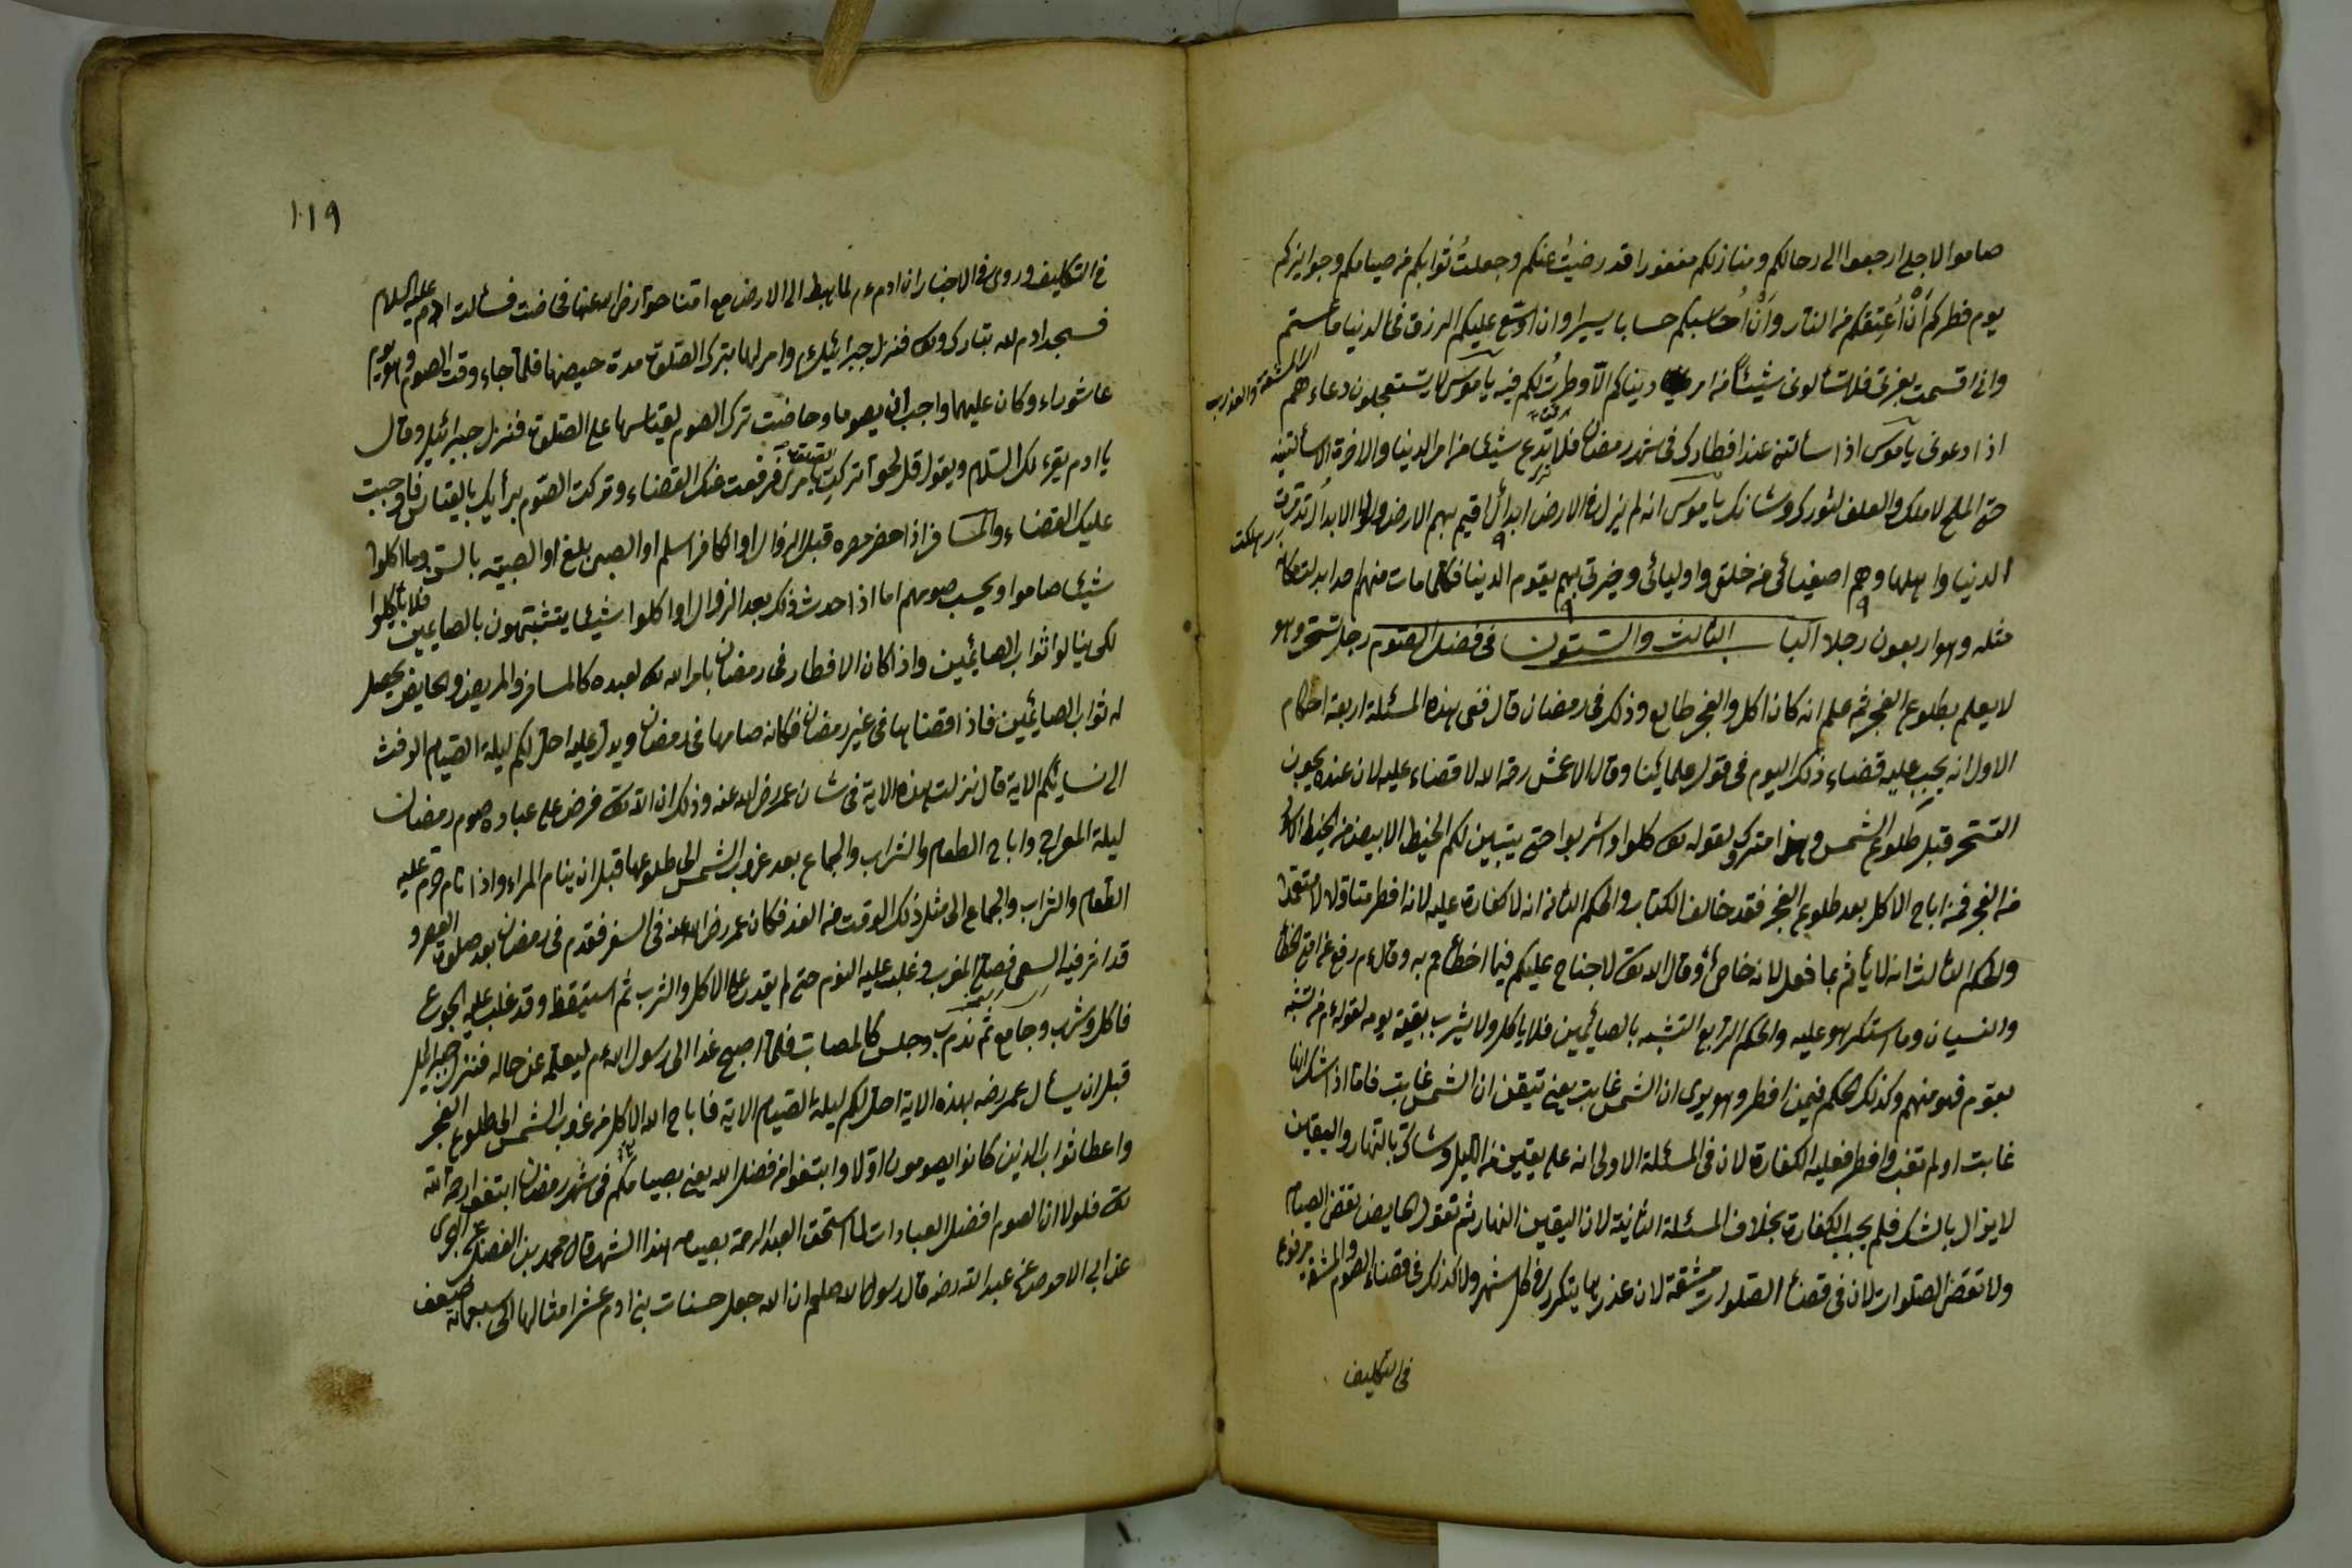 صاموا لاجلي ارجعوا الى رحالكم ومنازلكم مغفورا قد رضيت عنكم وجعلت ثوابكم من صيامكم وجوايزكم
يوم فطركم أن أعتقكم من النار وأن أحاسبكم حسابا يسيرا وان اوسع عليكم الرزق في الدنيا
واني اقسمت بعزتي فلا تسألوني شيئا من امر دنياكم الا وطرت لكم فيه يا موسى لا يستعجلون دعاءهم
اذا دعوني يا موسى اذا سألتني عند افطارك في شهر رمضان فلا تدع شيئا من امر الدنيا والاخرة الا سألتنيه
حتى الملح لاهلك والعلف لثورك وشاتك يا موسى انه لم يزل في الارض ابدال اقيم بهم الارض ولولا الابدال
الدنيا واهلها وهم اصفيائي من خلقي واوليائي وخيرتي بهم يقوم الدنيا فكلما مات منهم احد ابدلت مكانه
مثله وهو اربعون رجلا الباب الثالث والستون في فضل الصوم رجل تسحر وهو
لا يعلم بطلوع الفجر ثم علم انه كان اكل والفجر طالع وذلك في رمضان قال ففي هذه المسئلة اربعة احكام
الاول انه يجب عليه قضاء ذلك اليوم في قول علمائنا وقال الاعمش رحه الله لا قضاء عليه لان عنده يجوز
التسحر قبل طلوع الشمس وهذا متروك لقوله تعالى كلوا واشربوا حتى يتبين لكم الخيط الابيض من الخيط الاسود
من الفجر فمن اباح الاكل بعد طلوع الفجر فقد خالف الكتاب والحكم الثاني انه لا كفارة عليه لانه افطر متاولا لا متعمدا
والحكم الثالث انه لا يأثم بما فعل لانه خاطئ وقال الله تعالى لا جناح عليكم فيما اخطأتم به وقال عم رفع عن امتي الخطأ
والنسيان وما استكرهوا عليه والحكم الرابع التشبه بالصائمين فلا ياكل ولا يشرب بقية يومه لقوله عم من تشبه
بقوم فهو منهم وكذلك الحكم فيمن افطر وهو يرى ان الشمس غابت يعني تيقن ان الشمس غابت فاما اذا شك انها
غابت او لم تغب وافطر فعليه الكفارة لان في المسئلة الاولى انه على يقين من الليل وشاك بالنهار واليقين
لا يزال بالشك فلم يجب الكفارة بخلاف المسئلة الثانية لان اليقين النهار ثم تقول الحايض تقضي الصيام
ولا تقضي الصلوات لان في قضاء الصلوات مشقة لان عذرها يتكرر في كل شهر ولا كذلك في قضاء الصوم والمشقة مرفوع
في التكليف
١١٩
في التكليف وروى في الاخبار ان ادم عم لما هبط الى الارض مع امنا حوا رض الله عنها فحاضت فسألت ادم عليه السلام
فسجد ادم لله تبارك وتعالى فنزل جبرائيل عم وامر لها بترك الصلوة مدة حيضها فلما جاء وقت الصوم وهو يوم
عاشوراء وكان عليهما واجب ان يصوما وحاضت ترك الصوم بقياسها على الصلوة فنزل جبرائيل وقال
يا ادم يقرء لك السلام ويقول قل لحوا تركت بامري فرفعت عنك القضاء وتركت الصوم برأيك بالقياس فاوجبت
عليك القضاء والمسافر اذا حضر مصره قبل الزوال او الكافر اسلم او الصبي بلغ او الصبية بالسن وما اكلوا
شيئا صاموا ويحسب صومهم اما اذا حدث ذلك بعد الزوال او اكلوا شيئا يتشبهون بالصايمين فلا ياكلوا
لكي ينالوا ثواب الصائمين واذا كان الافطار في رمضان بامر الله تعالى لعبده كالمسافر والمريض والحايض يحصل
له ثواب الصائمين فاذا قضاها في غير رمضان فكانه صامها في رمضان ويدل عليه احل لكم ليلة الصيام الرفث
الى نسائكم الاية قال نزلت هذه الاية في شان عمر رض الله عنه وذلك ان الله تعالى فرض على عباده صوم رمضان
ليلة المعراج واباح الطعام والشراب والجماع بعد غروب الشمس الى طلوعها قبل ان ينام المراء واذا نام حرم عليه
الطعام والشراب والجماع الى مثل ذلك الوقت من الغد فكان عمر رض الله عنه في السفر فقدم في رمضان بعد صلوة العصر و
قد اثر فيه السعي فصلى المغرب وغلب عليه النوم حتى لم يقدر على الاكل والشرب ثم استيقظ وقد غلب عليه الجوع
فاكل وشرب وجامع ثم ندم وجلس كالمصاب فلما اصبح غدا الى رسول الله عم ليعلمه عن حاله فنزل جبرائيل
قبل ان يسأل عمر رضه بهذه الاية احل لكم ليلة الصيام الاية فاباح الله الاكل من غروب الشمس الى طلوع الفجر
واعطا ثواب الذين كانوا يصومون اولا وابتغوا من فضل الله يعني بصيامكم في شهر رمضان ابتغوا رحمة الله
تعالى فلولا ان الصوم افضل العبادات لما استحق العبد الرحمة بصيام هذا الشهر قال محمد بن الفضل
عن ابي الاحوص عن عبد الله رضه قال رسول الله صلعم ان الله جعل حسنات بني ادم عشر امثالها الى سبعمائة ضعف